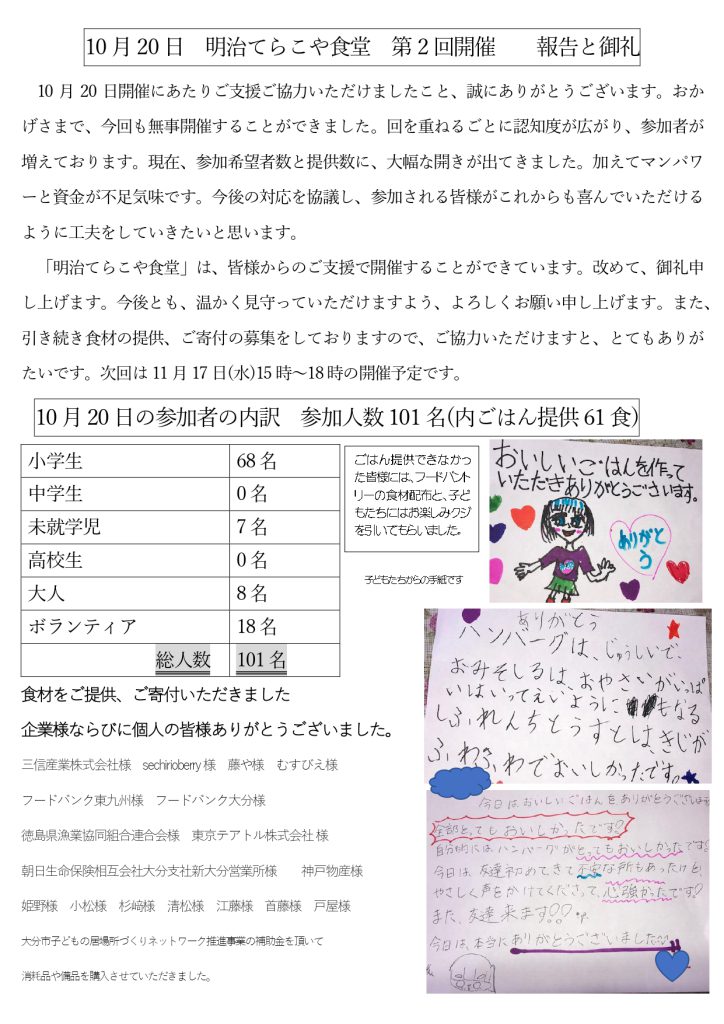 10月20日　明治てらこや食堂　第2回開催　　報告と御礼
10月20日開催にあたりご支援ご協力いただけましたこと、誠にありがとうございます。おか
げさまで、今回も無事開催することができました。回を重ねるごとに認知度が広がり、参加者が
増えております。現在、参加希望者数と提供数に、大幅な開きが出てきました。加えてマンパワ
ーと資金が不足気味です。今後の対応を協議し、参加される皆様がこれからも喜んでいただける
ように工夫をしていきたいと思います。
「明治てらこや食堂」は、皆様からのご支援で開催することができています。改めて、御礼申
し上げます。今後とも、温かく見守っていただけますよう、よろしくお願い申し上げます。また、
引き続き食材の提供、ご寄付の募集をしておりますので、ご協力いただけますと、とてもありが
たいです。次回は11月17日(水)15時～18時の開催予定です。
10月20日の参加者の内訳　参加人数101名(内ごはん提供61食)
小学生　68名
中学生　0名
未就学児　7名
高校生　0名
大人　8名
ボランティア　18名
総人数　101名
ごはん提供できなかっ
た皆様には、フードパント
リーの食材配布と、子ど
もたちにはお楽しみクジ
を引いてもらいました。
子どもたちからの手紙です
おいしいごはんを作って
いただきありがとうございます。
ありがと
う
ありがとう
ハンバーグは、じゅうしいで、
おみそしるは、おやさいがいっぱ
いはいってえいようにもなる
しふぉれんちとうすとは、きじが
ふわふわでおいしかったです。
今日はおいしいごはんをありがとうございます
全部とってもおいしかったです!!
自分的にはハンバーグがとってもおいしかったです
今日は、友達初めてきて不安な所もあったけど、
やさしく声をかけてくださって、心強かったです!!
また、友達来ます!!
今日は、本当にありがとうございました
食材をご提供、ご寄付いただきました
企業様ならびに個人の皆様ありがとうございました。
三信産業株式会社様　sechirioberry様　藤や様　むすびえ様
フードバンク東九州様　フードバンク大分様
徳島県漁業協同組合連合会様　東京テアトル株式会社様
朝日生命保険相互会社大分支社新大分営業所様　　神戸物産様
姫野様　小松様　杉﨑様　清松様　江藤様　首藤様　戸屋様
大分市子どもの居場所づくりネットワーク推進事業の補助金を頂いて
消耗品や備品を購入させていただきました。